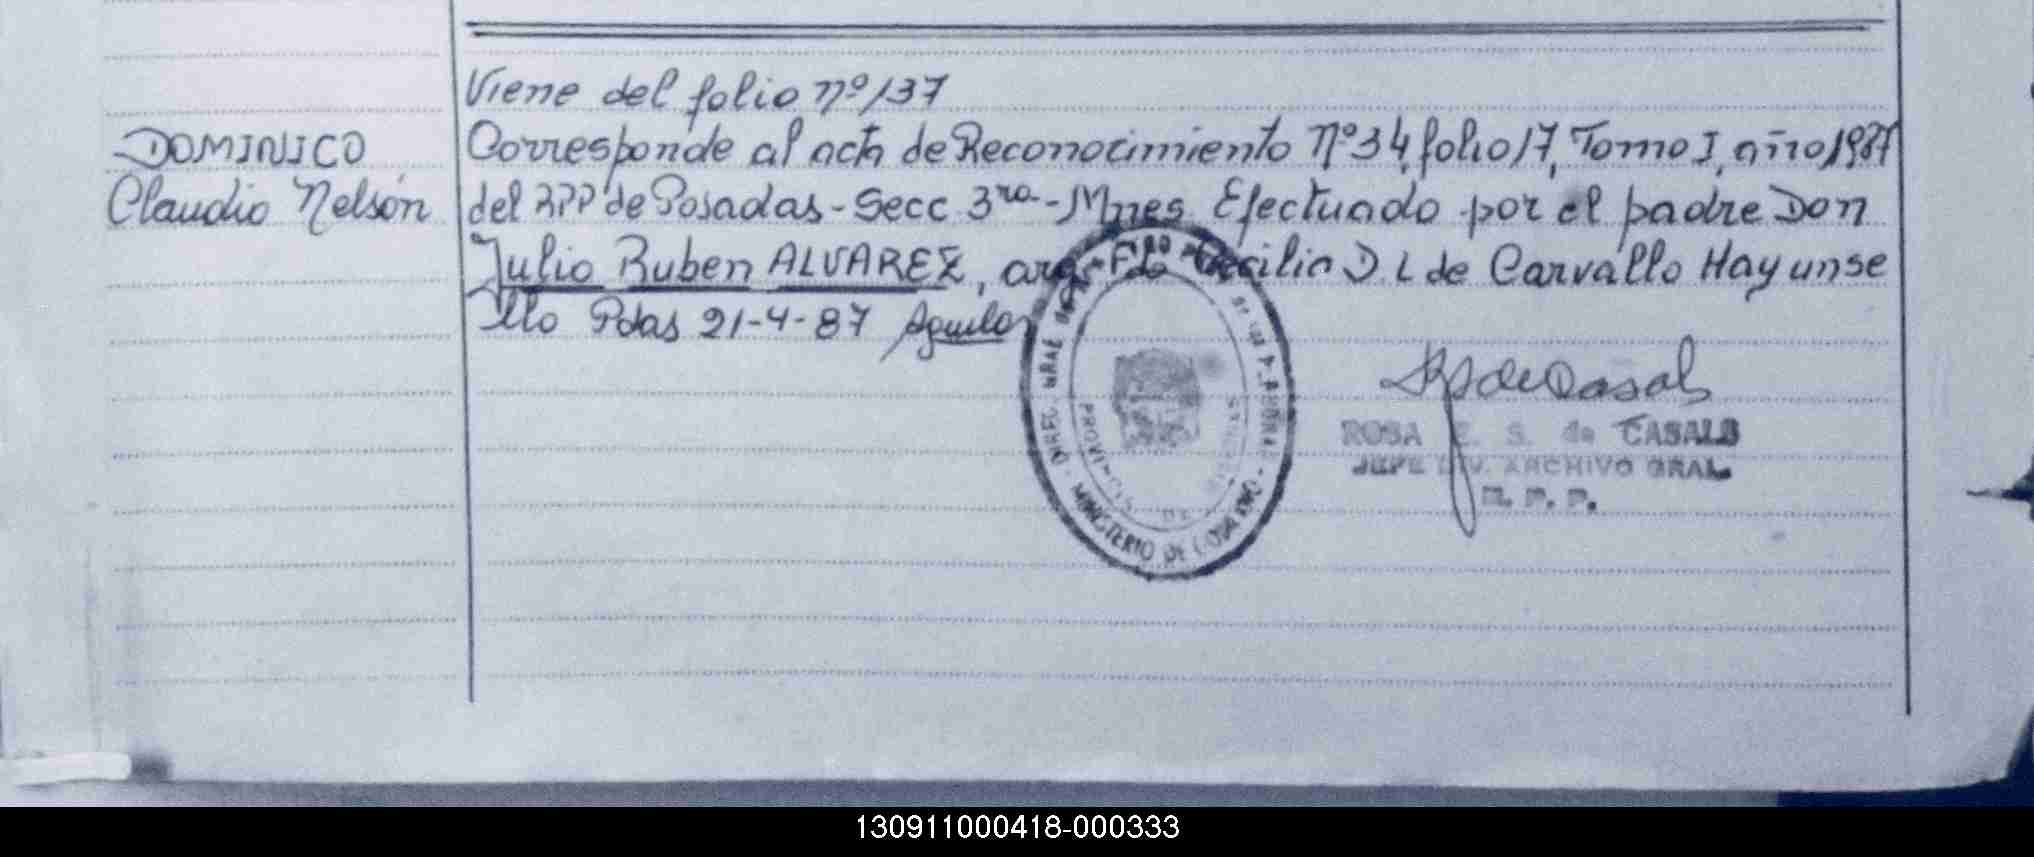 Viene del folio nº 137
DOMINICO
Claudio Nelson
Corresponde al acta de Reconocimiento Nº 34, folio 17, Tomo I, año 1987
del RPP de Posadas - Secc 3ra - Mnes. Efectuado por el padre Don
Julio Ruben ALVAREZ, arg. Fdo Cecilia D. L de Carvallo Hay un se
llo Pdas 21-4-87 Aguilar
MINISTERIO DE GOBIERNO
ROSA E. S. de CASALS
JEFE DIV. ARCHIVO GRAL
R. P. P.
130911000418-000333